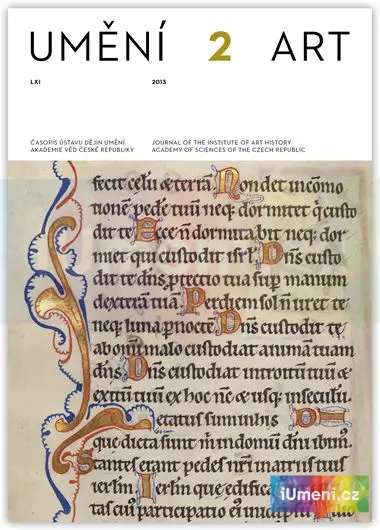 UMĚNÍ 2 ART
LXI 2013
ČASOPIS ÚSTAVU DĚJIN UMĚNÍ
AKADEMIE VĚD ČESKÉ REPUBLIKY
JOURNAL OF THE INSTITUTE OF ART HISTORY
ACADEMY OF SCIENCES OF THE CZECH REPUBLIC
fecit celū & terrā. Non det in cōmo
tionē pedē tuū neq; dormitet q̄ custo
dit te Ecce n̄ dormitabit neq; dor
miet qui custodit isrl̄. Dn̄s custo
dit te dn̄s ꝓtectio tua suꝑ manum
dexterā tuā. Per diem sol n̄ uret te
neq; luna ꝑ nocte. Dn̄s custodit te
ab omī malo custodiat animā tuam
dn̄s. Dn̄s custodiat introitū tuū &
exitū tuū ex hoc nc̄ & usq; in seculū
etatus sum in his
que dicta sunt m in domum dn̄i ibim᾽.
Stantes erant pedes nr̄i in atriis tuis
ierl̄m Ierl̄m que edifica
tas cui᾽ participatio ei᾽ in
iUmeni.cz